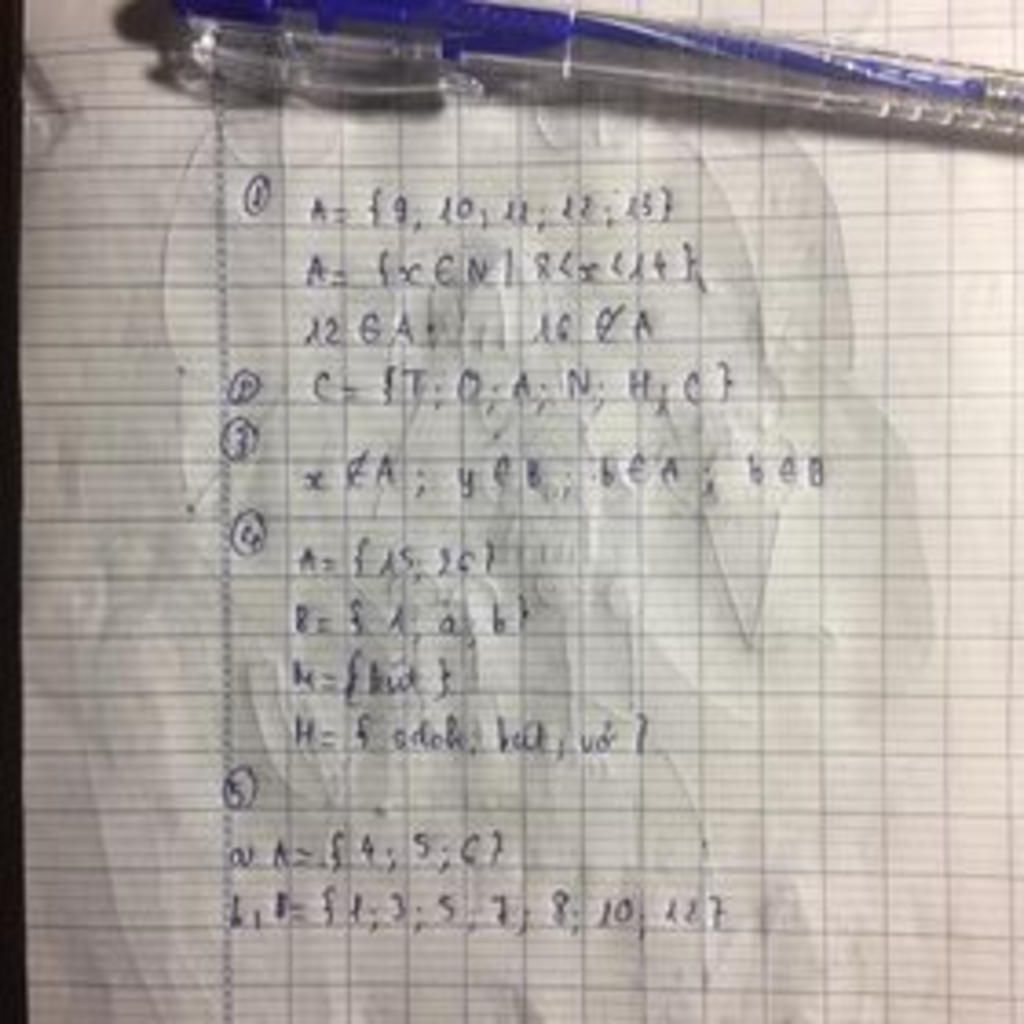 ① A = {9; 10; 11; 12; 13}
A = {x ∈ N | 8 < x < 14}
12 ∈ A; 16 ∉ A
② C = {T; O; A; N; H; C}
③
x ∉ A ; y ∈ B ; b ∈ A ; b ∈ B
④
A = {15; 26}
B = {1; a; b}
M = {bút}
H = {sách; bút; vở}
⑤
a, A = {4; 5; 6}
b, B = {1; 3; 5; 7; 8; 10; 12}